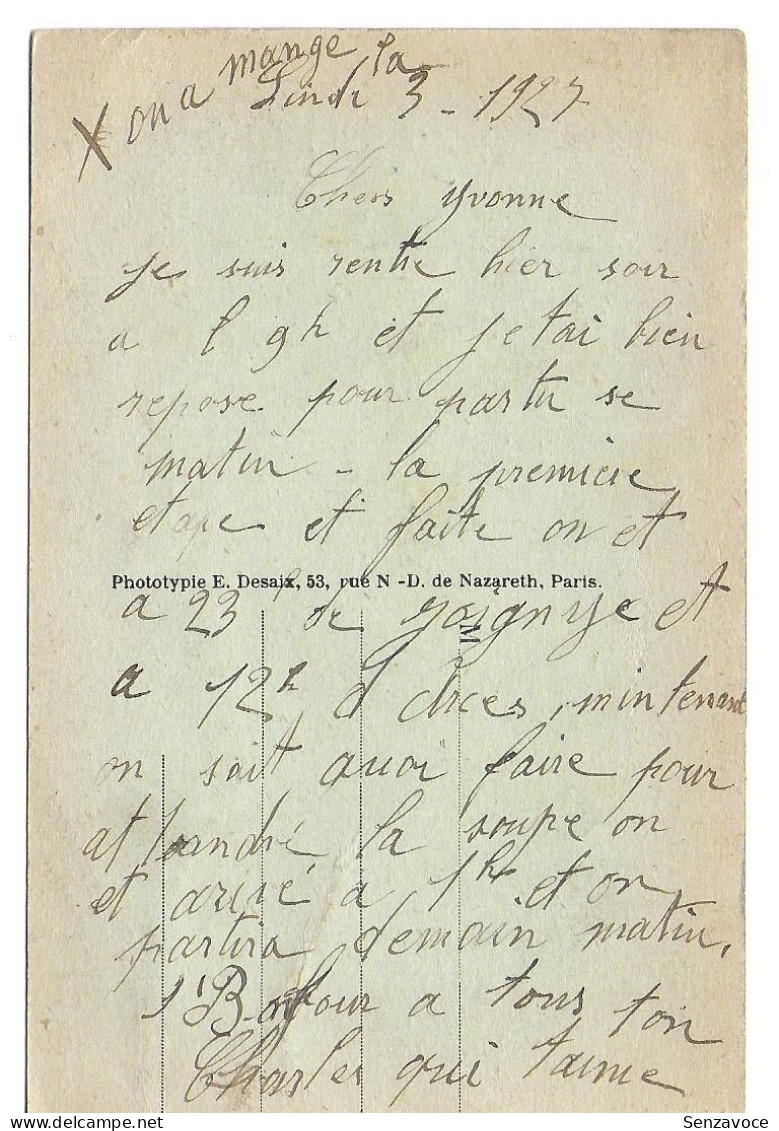 X on a mange la
Lindi 3 - 1927
Chers Yvonne
je suis rentre hier soir
a 9h et jetai bien
repose pour partir se
matin - la premiere
etape et faite on et
Phototypie E. Desaix, 53, rue N.-D. de Nazareth, Paris.
a 23 de et
a 12h mintenant
on sait quoi faire pour
la soupe on
et arivé a 1h et on
partira demain matin,
Bonjour a tous ton
Charles qui taime
Senzavoce